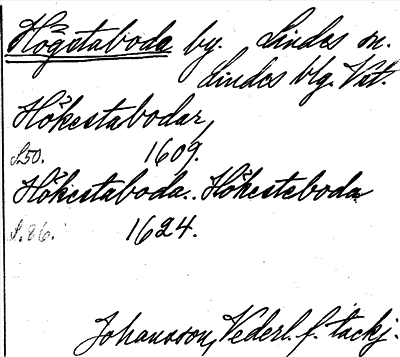 Högstaboda by. Lindes sn.
Lindes blg. Vst.
Hökestabodar,
S.50. 1609.
Hökestaboda. Hökesteboda
S.86. 1624.
Johansson, Vederl. f. tackj.